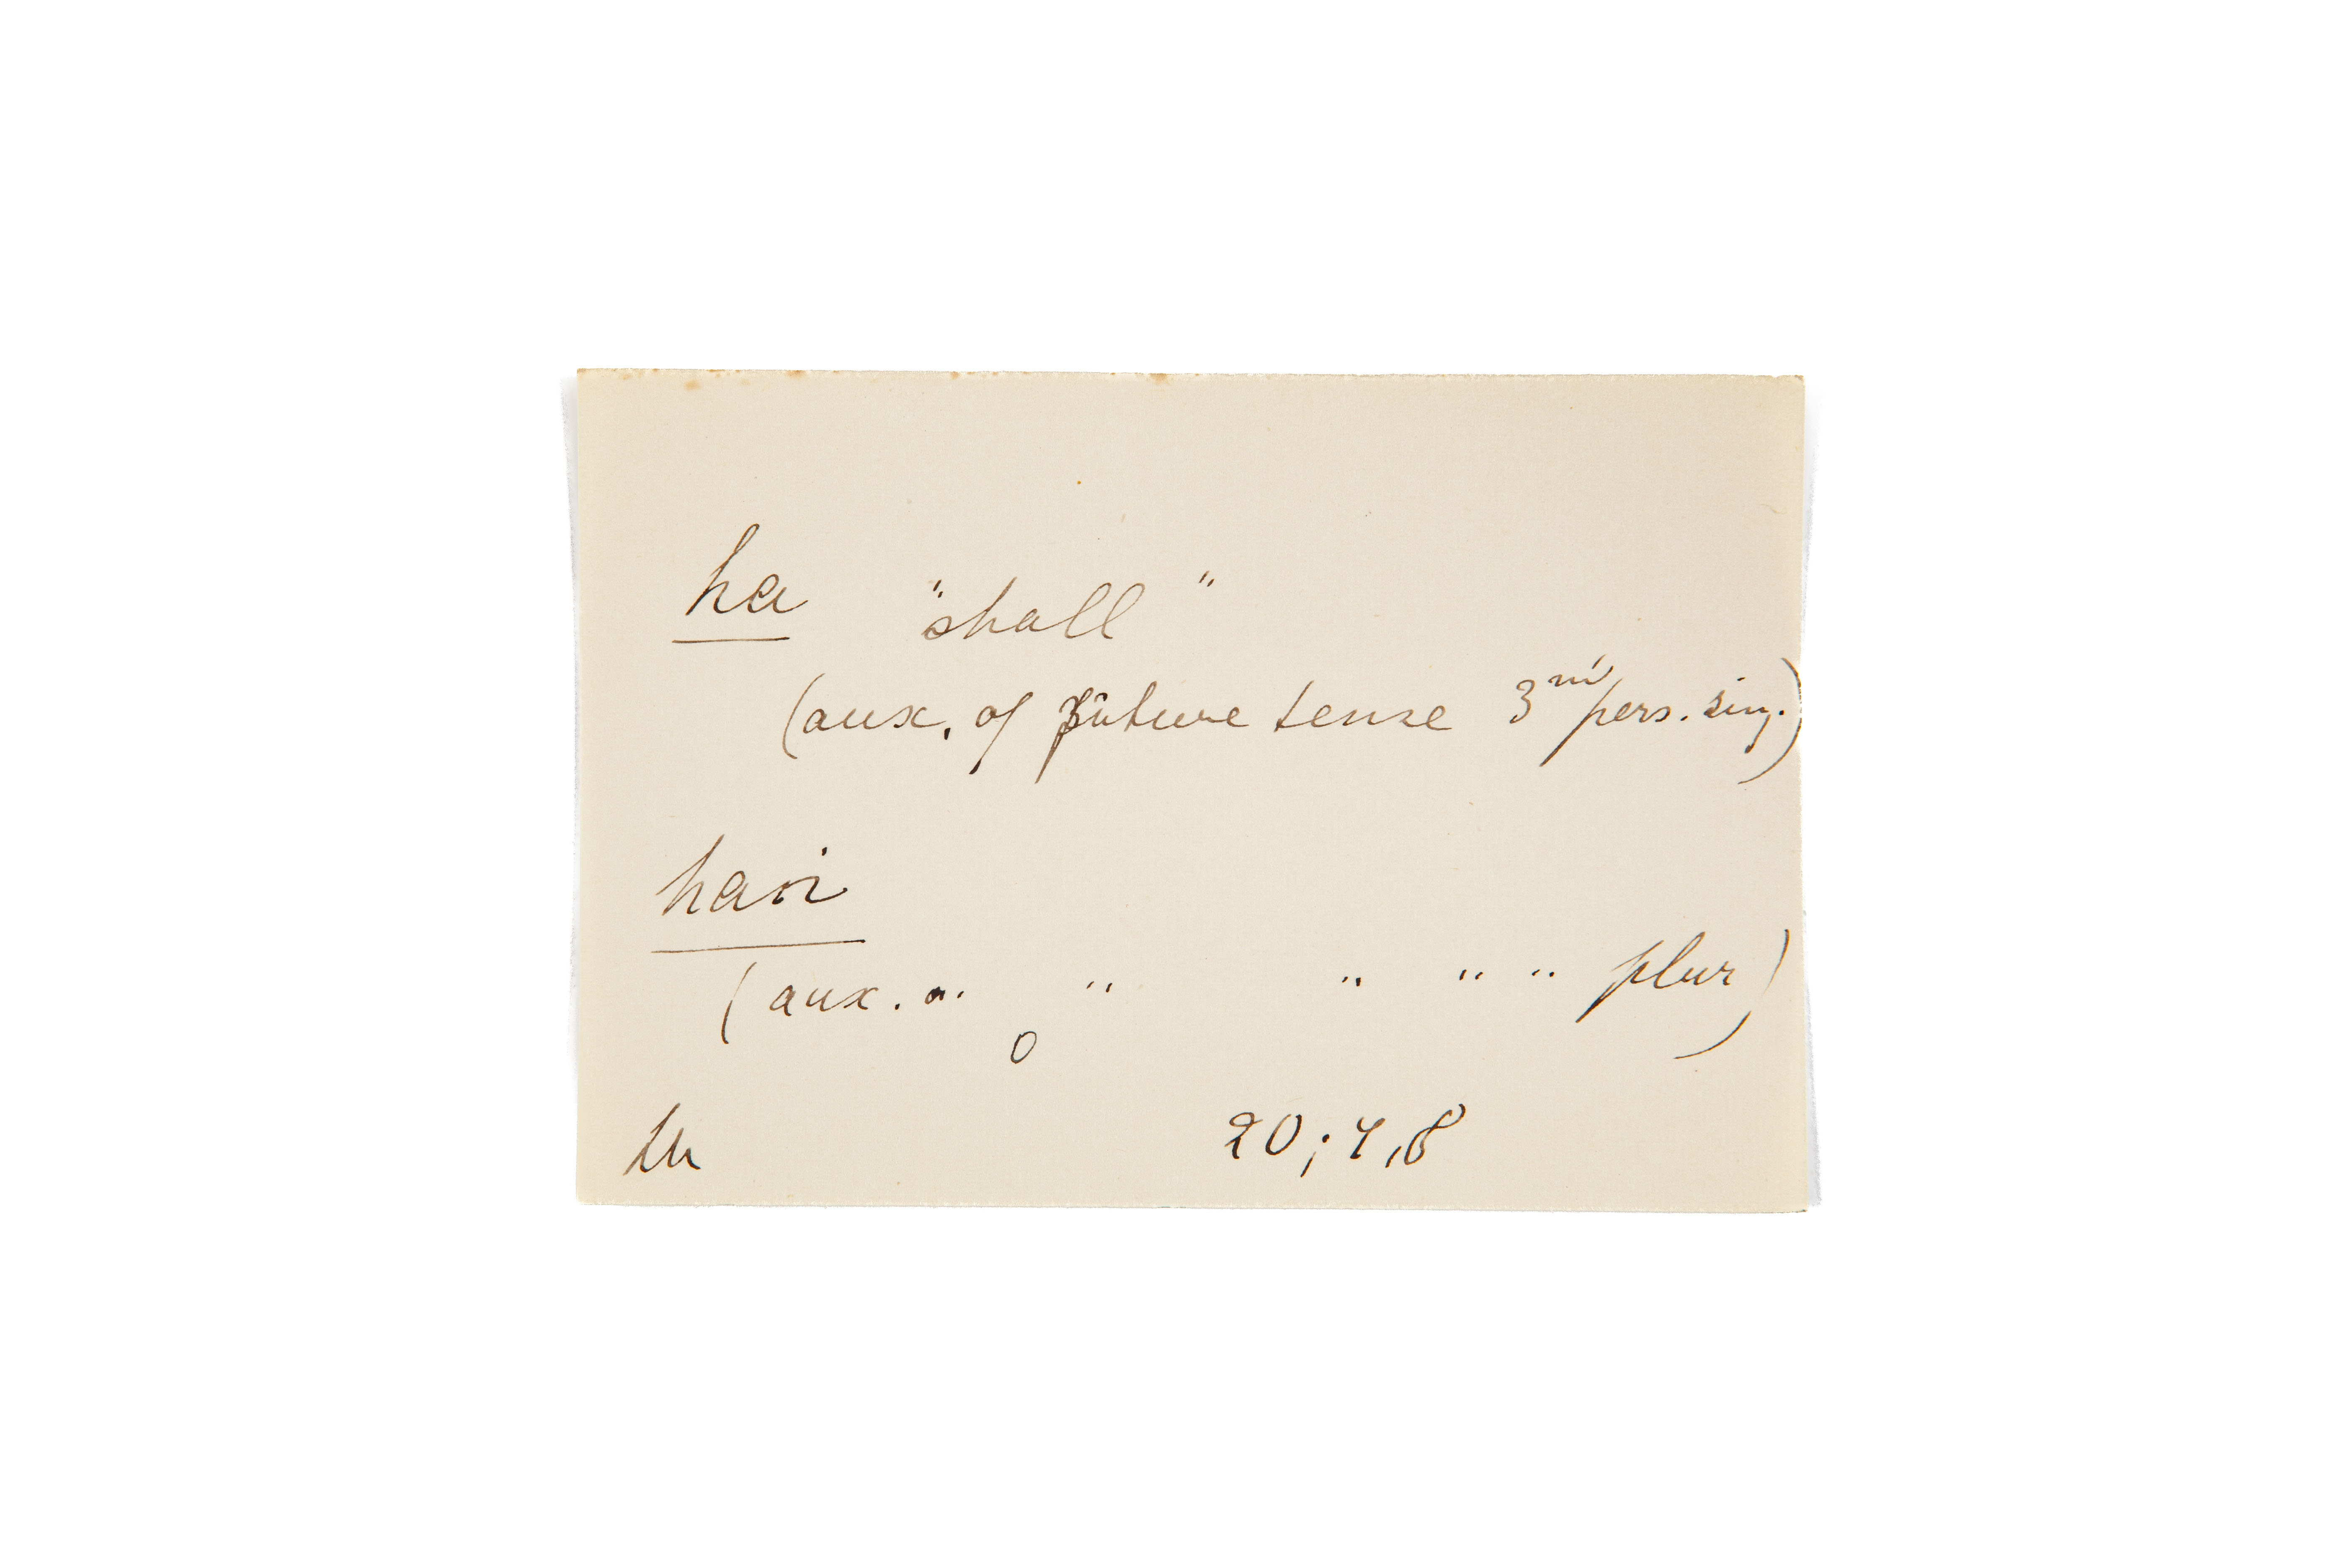 ha "shall"
(aux. of future tense 3rd pers. sing.)
hari
(aux. " " " " " plur)
O
20; 7,8